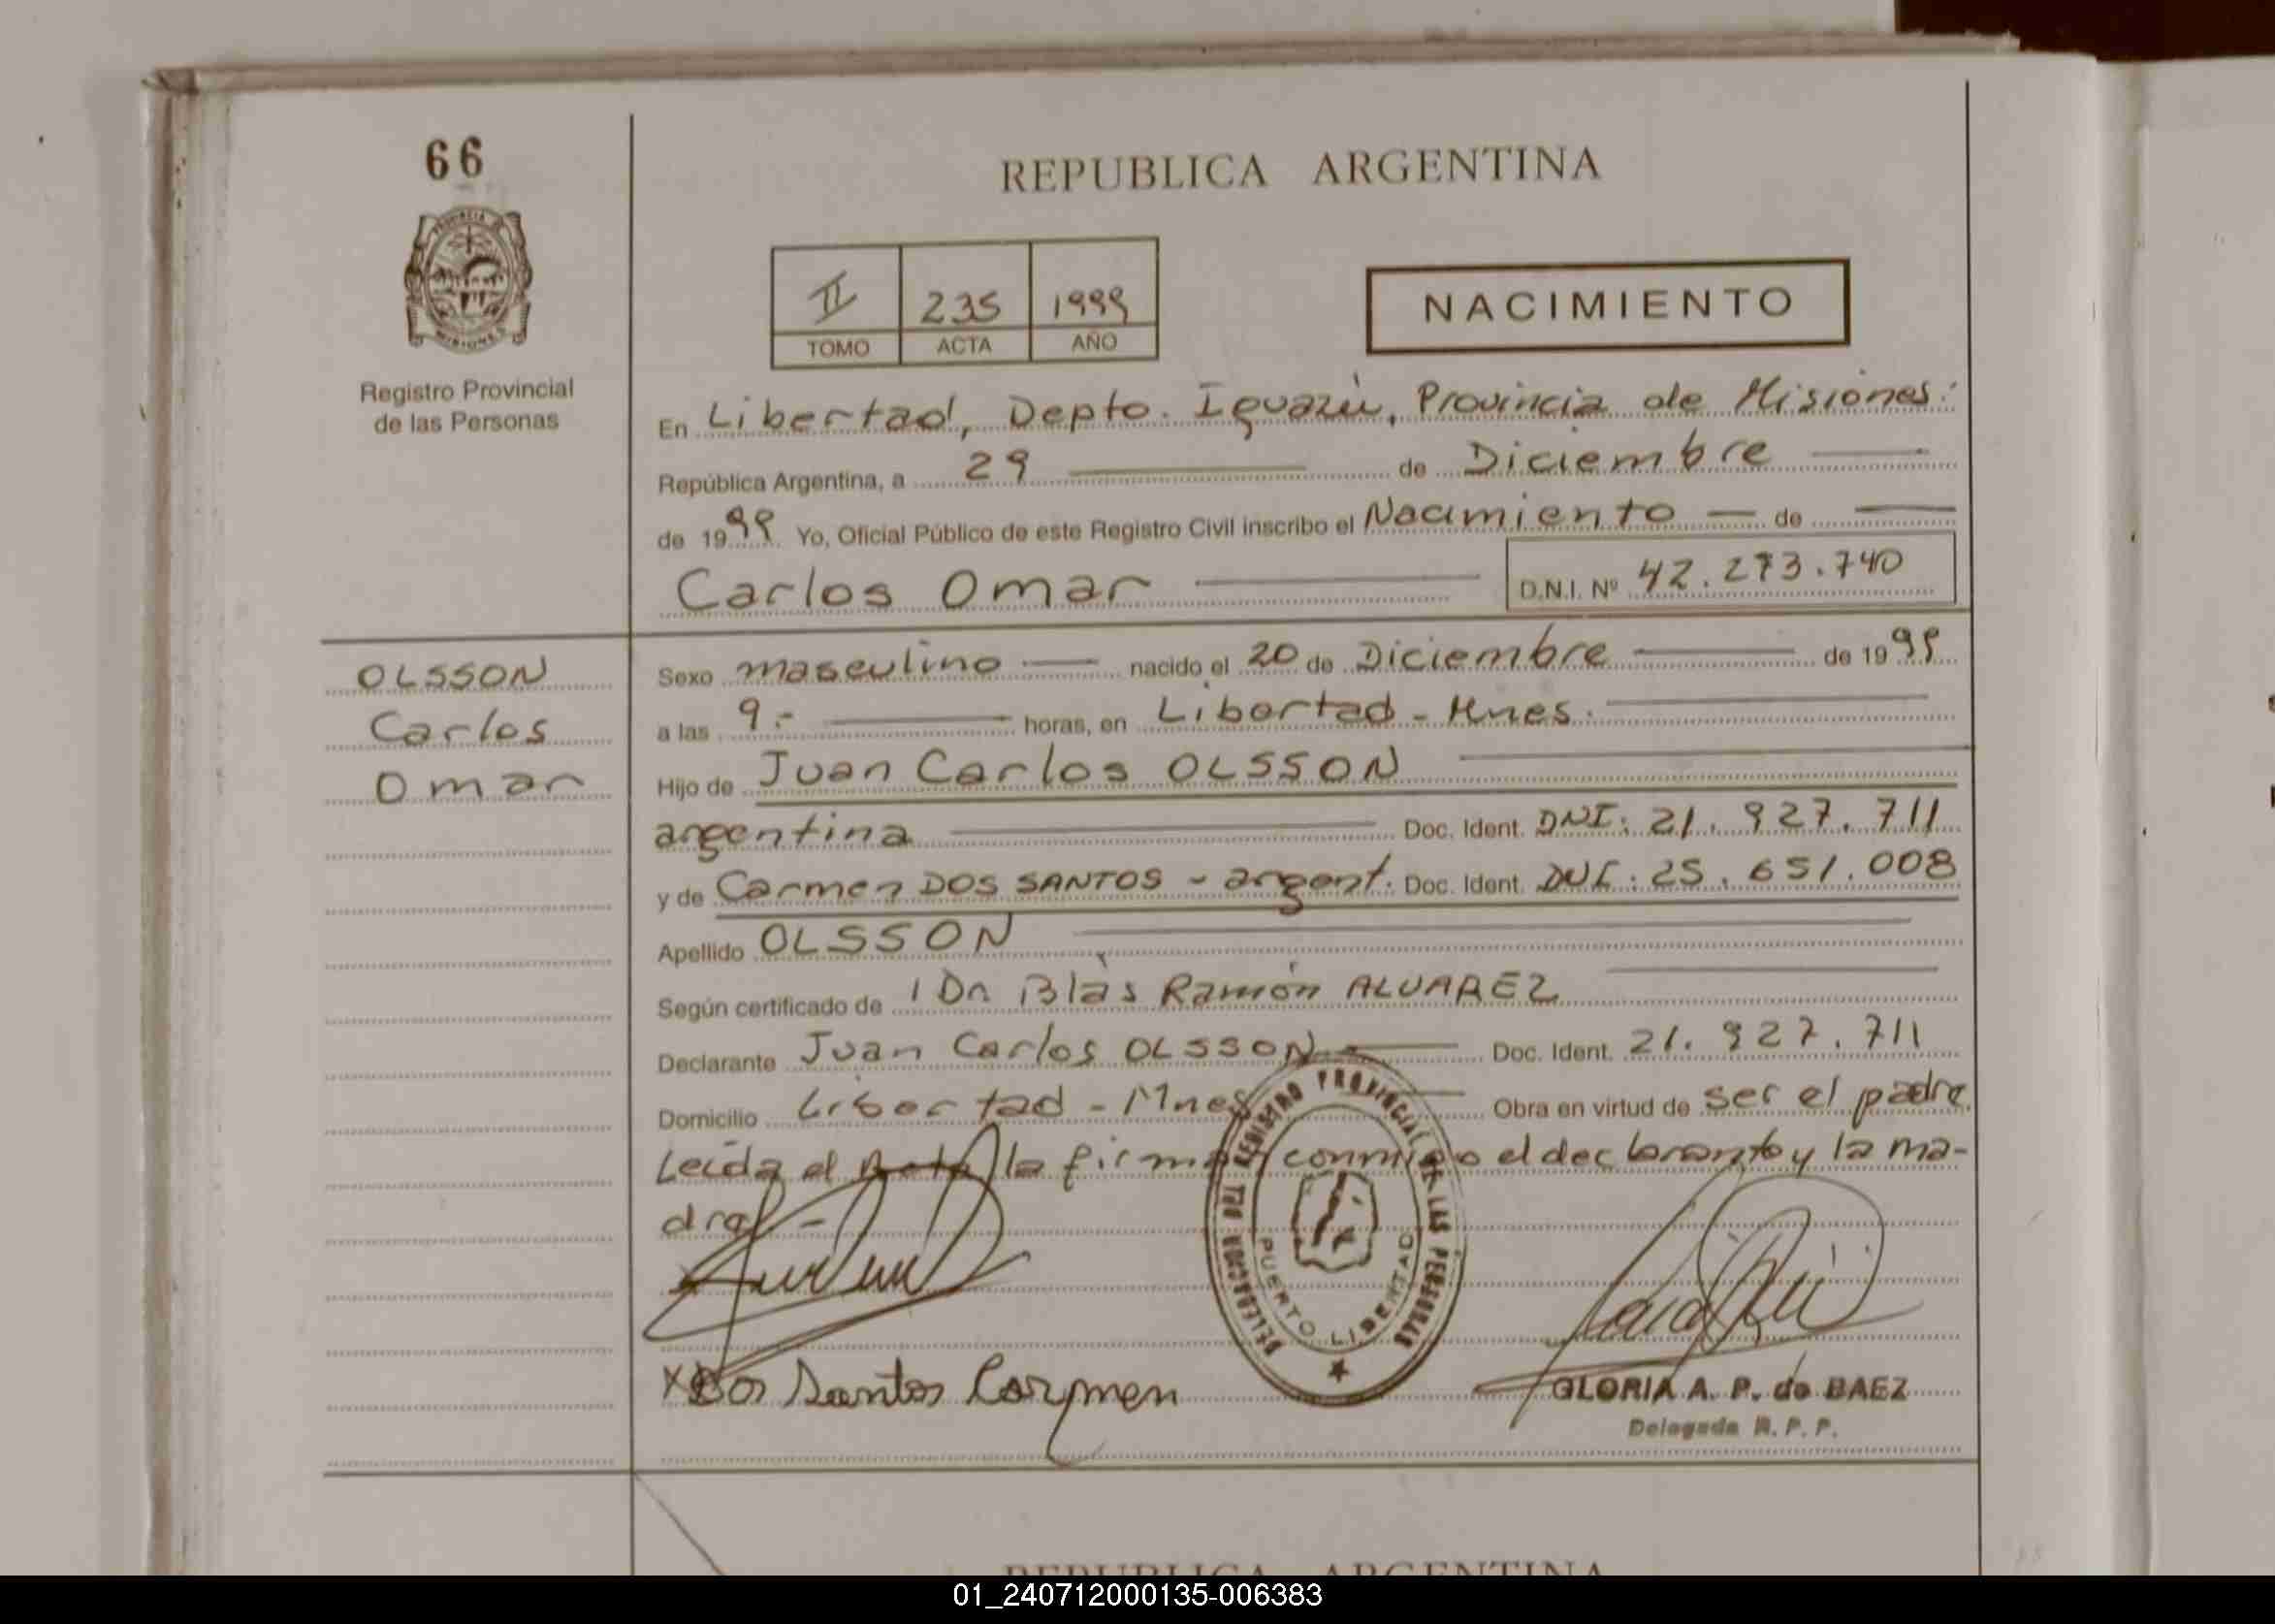 66
REPUBLICA ARGENTINA
PROVINCIA
MISIONES
Registro Provincial
de las Personas
II 235 1999
TOMO ACTA AÑO
NACIMIENTO
En Libertad, Depto. Iguazú, Provincia de Misiones.
República Argentina, a 29 de Diciembre
de 1999 Yo, Oficial Público de este Registro Civil inscribo el Nacimiento de
Carlos Omar D.N.I. Nº 42.273.740
OLSSON
Carlos
Omar
Sexo masculino nacido el 20 de Diciembre de 1999
a las 9.- horas, en Libertad - Mnes.
Hijo de Juan Carlos OLSSON
argentina Doc. Ident. DNI: 21.927.711
y de Carmen DOS SANTOS - argent. Doc. Ident. DNI: 25.651.008
Apellido OLSSON
Según certificado de Dr. Blás Ramón ALVAREZ
Declarante Juan Carlos OLSSON Doc. Ident. 21.927.711
Domicilio Libertad - Mnes Obra en virtud de ser el padre.
Leída el Acta la firman conmigo el declarante y la ma-
dre.-
DELEGACION DEL REGISTRO PROVINCIAL DE LAS PERSONAS
PUERTO LIBERTAD
X Dos Santos Carmen
GLORIA A. P. de BAEZ
Delegada R. P. P.
REPUBLICA ARGENTINA
01_240712000135-006383